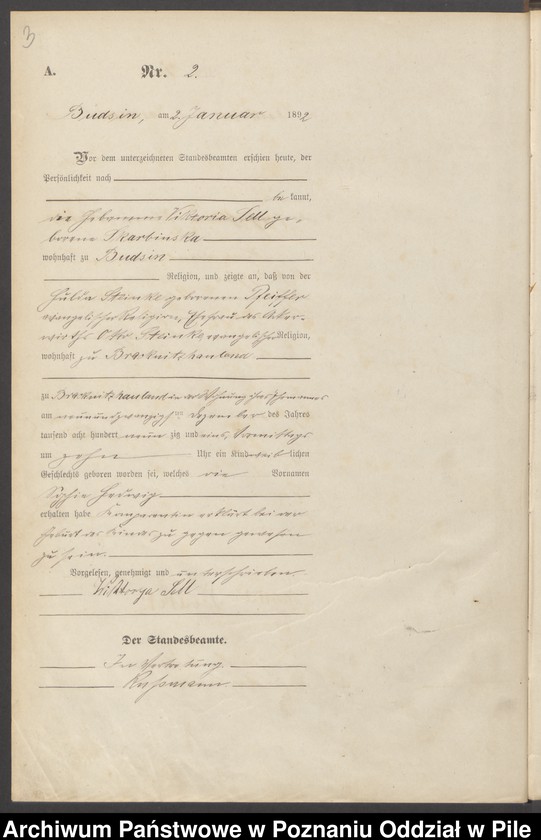 3
A. Nr. 2.
Budsin, am 2. Januar 1892
Vor dem unterzeichneten Standesbeamten erschien heute, der
Persönlichkeit nach
bekannt,
die Hebamme Viktoria Sell ge-
borene Skarbinska
wohnhaft zu Budsin
Religion, und zeigte an, daß von der
Hulda Steinke geborenen Pfeiffer
evangelischer Religion, Ehefrau des Acker-
wirths Otto Steinke evangelischer Religion,
wohnhaft zu Bracknitzhauland
zu Bracknitzhauland in der Wohnung ihres Ehemannes
am neunundzwanzigsten Dezember des Jahres
tausend acht hundert neunzig und eins, Vormittags
um zehn Uhr ein Kind weiblichen
Geschlechts geboren worden sei, welches die Vornamen
Sophie Hedwig
erhalten habe. Komparentin erklärt bei der
Geburt des Kindes zugegen gewesen
zu sein.
Vorgelesen, genehmigt und unterschrieben
Wiktorya Sell
Der Standesbeamte.
In Vertretung
Archiwum Państwowe w Poznaniu Oddział w Pile